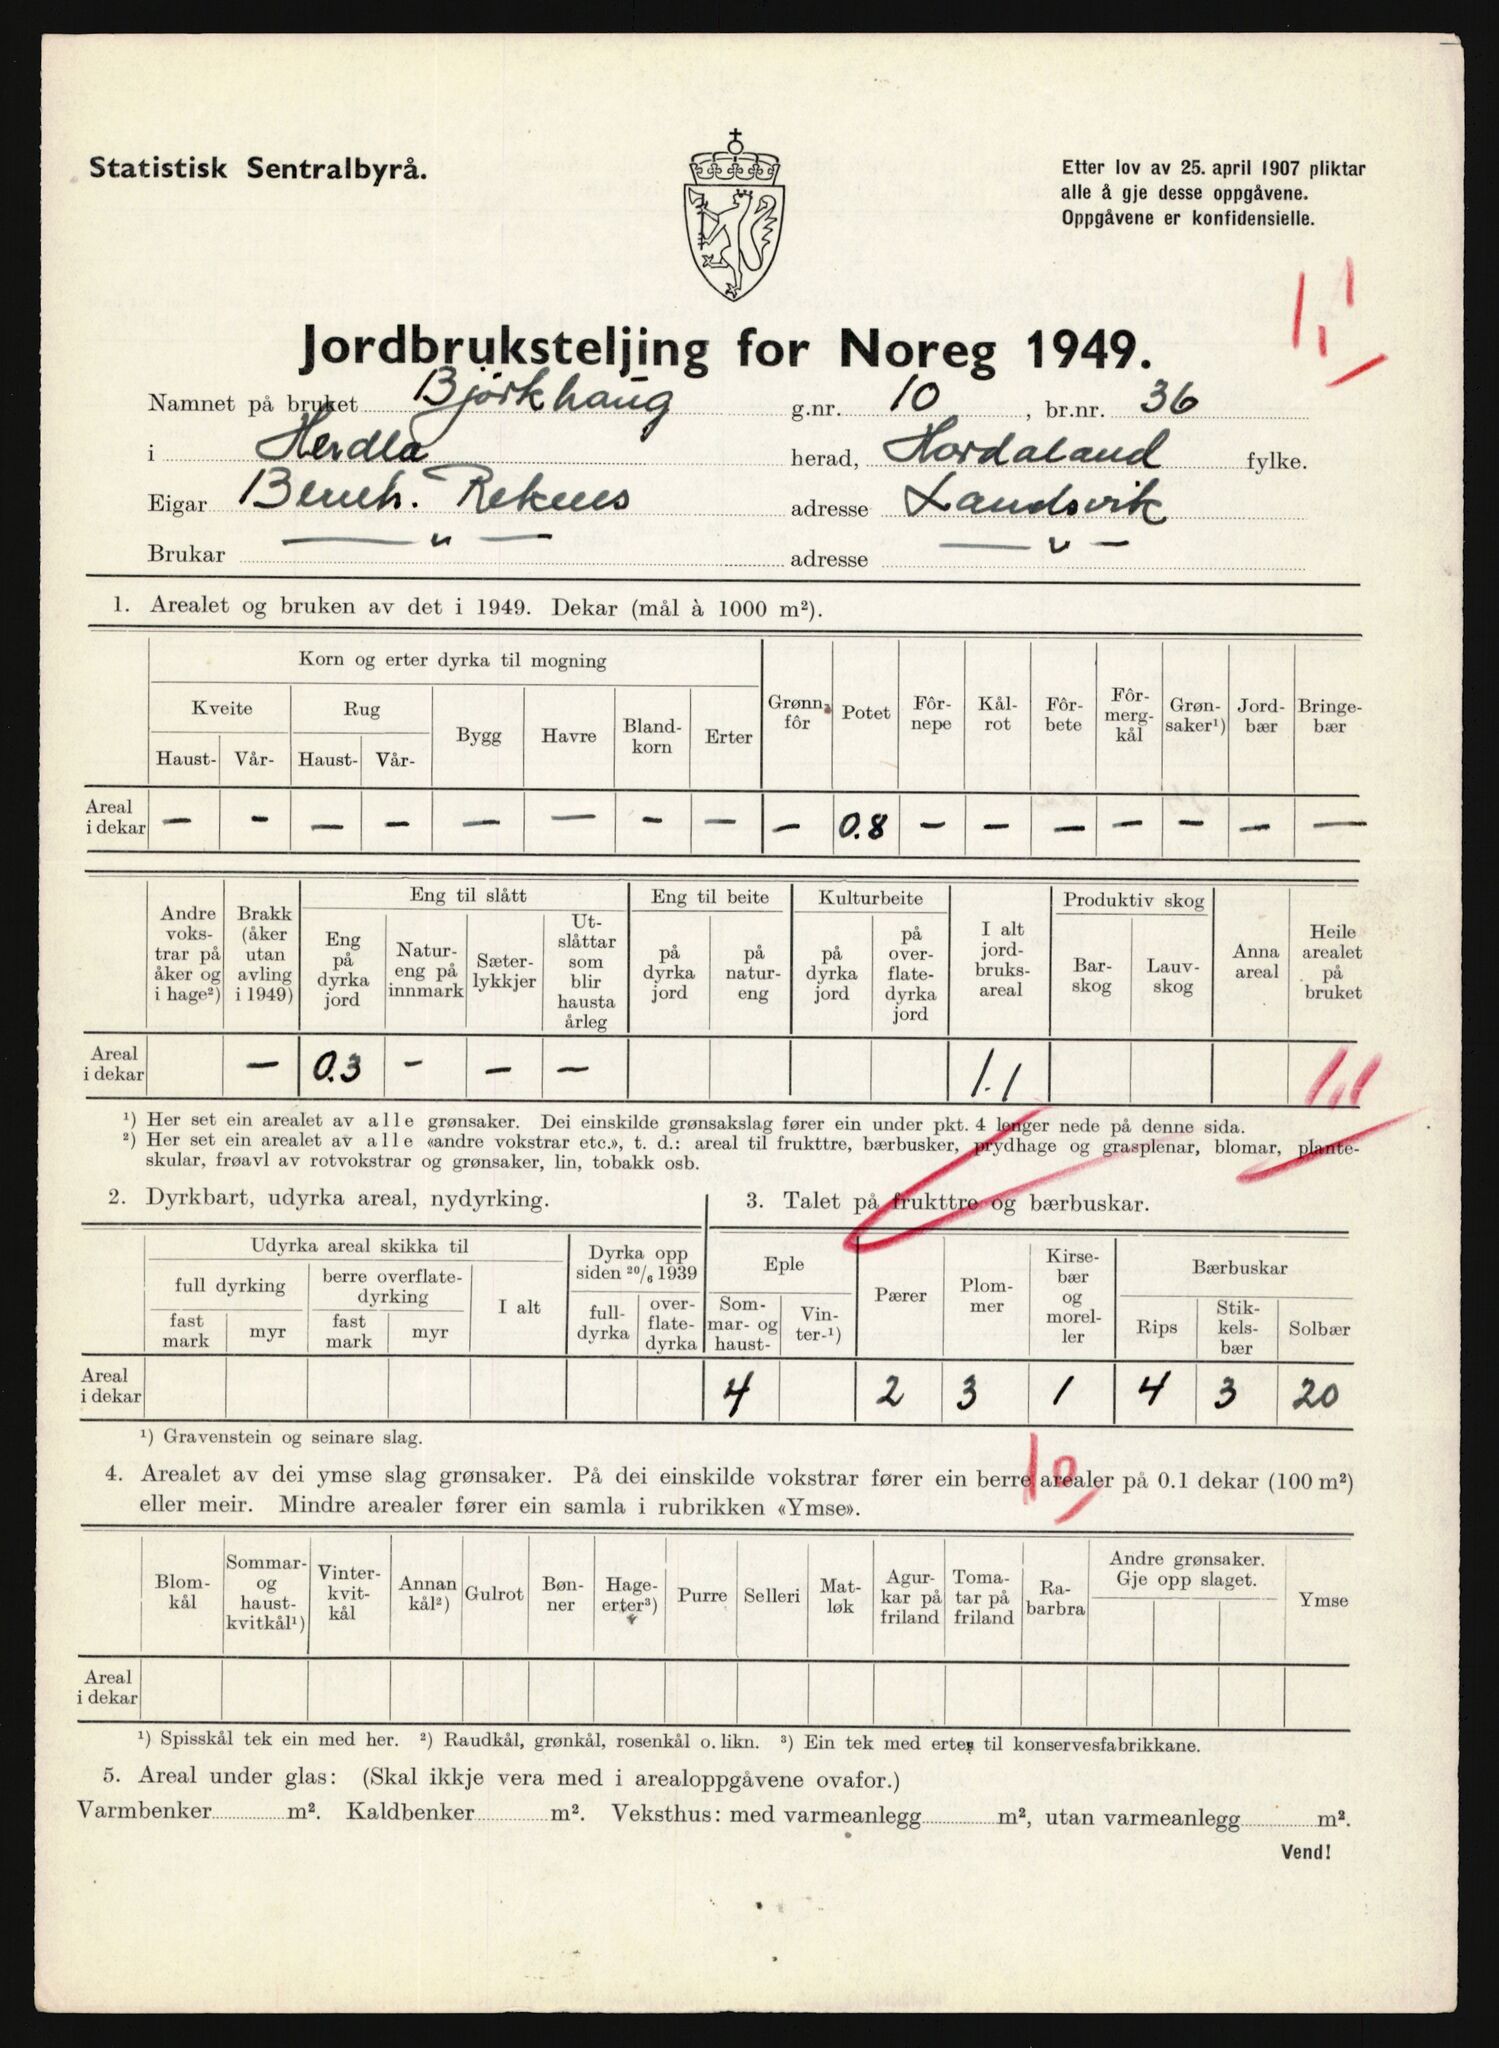 Statistisk Sentralbyrå.
Etter lov av 25. april 1907 pliktar
alle å gje desse oppgåvene.
Oppgåvene er konfidensielle.
1,1
Jordbruksteljing for Noreg 1949.
Namnet på bruket Bjørkhaug g.nr. 10, br.nr. 36
i Herdla herad, Hordaland fylke.
Eigar Bernh. Reknes adresse Landsvik
Brukar — " — adresse — " —
1. Arealet og bruken av det i 1949. Dekar (mål à 1000 m²).
Korn og erter dyrka til mogning
Kveite Rug Bygg Havre Bland-korn Erter Grønn-fôr Potet Fôr-nepe Kål-rot Fôr-bete Fôr-mergkål Grøn-saker¹) Jord-bær Bringe-bær
Haust- Vår- Haust- Vår-
Areal i dekar — — — — — — — — — 0.8 — — — — — — —
Eng til slått Eng til beite Kulturbeite Produktiv skog
Andre voks-trar på åker og i hage²) Brakk (åker utan avling i 1949) Eng på dyrka jord Natur-eng på innmark Sæter-lykkjer Ut-slåttar som blir hausta årleg på dyrka jord på natur-eng på dyrka jord på over-flate-dyrka jord I alt jord-bruks-areal Bar-skog Lauv-skog Anna areal Heile arealet på bruket
Areal i dekar — 0.3 — — — 1.1 1,1
¹) Her set ein arealet av alle grønsaker. Dei einskilde grønsakslag fører ein under pkt. 4 lenger nede på denne sida.
²) Her set ein arealet av alle «andre vokstrar etc.», t. d.: areal til frukttre, bærbusker, prydhage og grasplenar, blomar, plante-
skular, frøavl av rotvokstrar og grønsaker, lin, tobakk osb.
2. Dyrkbart, udyrka areal, nydyrking.
3. Talet på frukttre og bærbuskar.
Udyrka areal skikka til Dyrka opp siden 20/6 1939 Eple Pærer Plom-mer Kirse-bær og morel-ler Bærbuskar
full dyrking berre overflate-dyrking I alt full-dyrka over-flate-dyrka Som-mar- og haust- Vin-ter-¹) Rips Stik-kels-bær Solbær
fast mark myr fast mark myr
Areal i dekar 4 2 3 1 4 3 20
¹) Gravenstein og seinare slag.
10
4. Arealet av dei ymse slag grønsaker. På dei einskilde vokstrar fører ein berre arealer på 0.1 dekar (100 m²)
eller meir. Mindre arealer fører ein samla i rubrikken «Ymse».
Blom-kål Sommar- og haust-kvitkål¹) Vinter-kvit-kål Annan kål²) Gulrot Bøn-ner Hage-erter³) Purre Selleri Mat-løk Agur-kar på friland Toma-tar på friland Ra-barbra Andre grønsaker. Gje opp slaget. Ymse
Areal i dekar
¹) Spisskål tek ein med her. ²) Raudkål, grønkål, rosenkål o. likn. ³) Ein tek med erter til konservesfabrikkane.
5. Areal under glas: (Skal ikkje vera med i arealoppgåvene ovafor.)
Varmbenker m². Kaldbenker m². Veksthus: med varmeanlegg m², utan varmeanlegg m².
Vend!